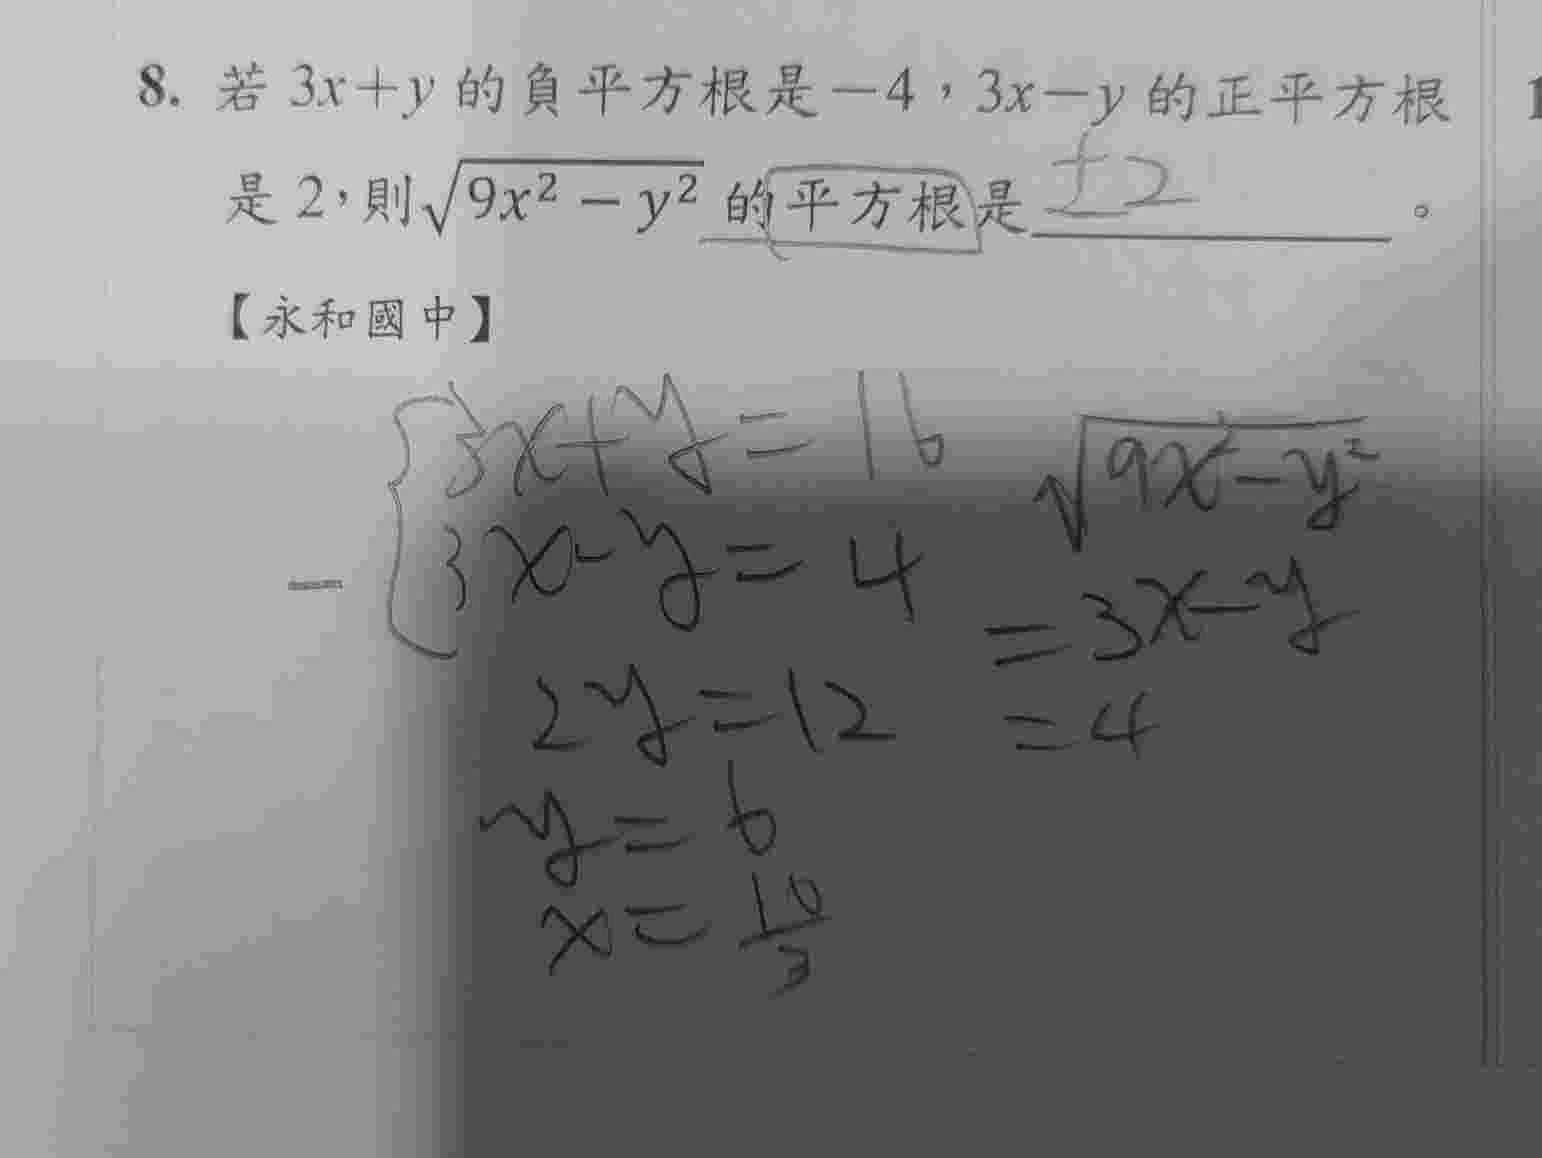 8. 若 3x+y 的負平方根是−4，3x−y 的正平方根
是 2，則√(9x² − y²) 的平方根是 ±2 。
【永和國中】
3x+y=16
− 3x-y=4
2y=12
y=6
x=10/3
√(9x²-y²)
=3x-y
=4
1